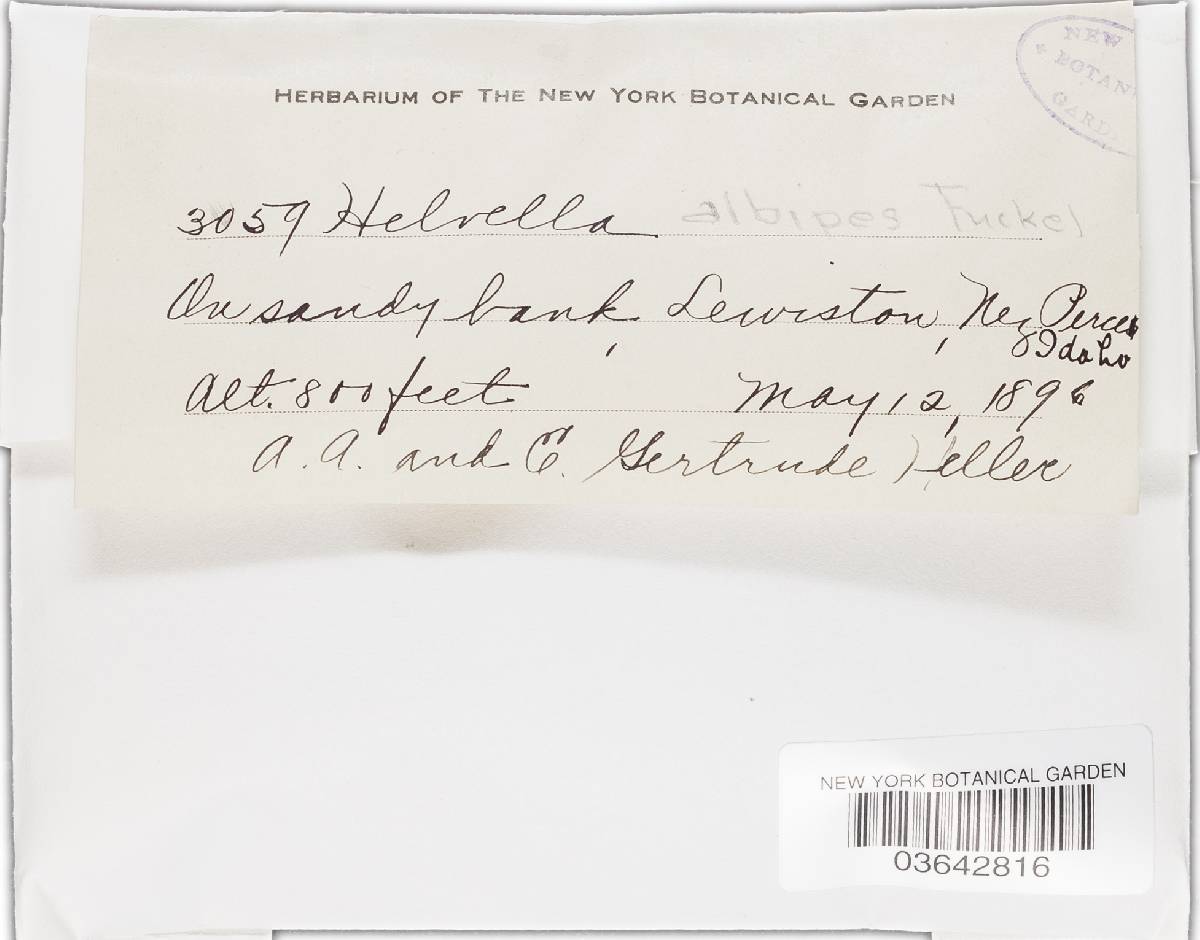 HERBARIUM OF THE NEW YORK BOTANICAL GARDEN
NEW
BOTAN
GARD
3059 Helvella albipes Fuckel
On sandy bank, Lewiston, Nez Perces
Idaho
Alt. 800 feet May 12, 1896
A. A. and E. Gertrude Heller
NEW YORK BOTANICAL GARDEN
03642816